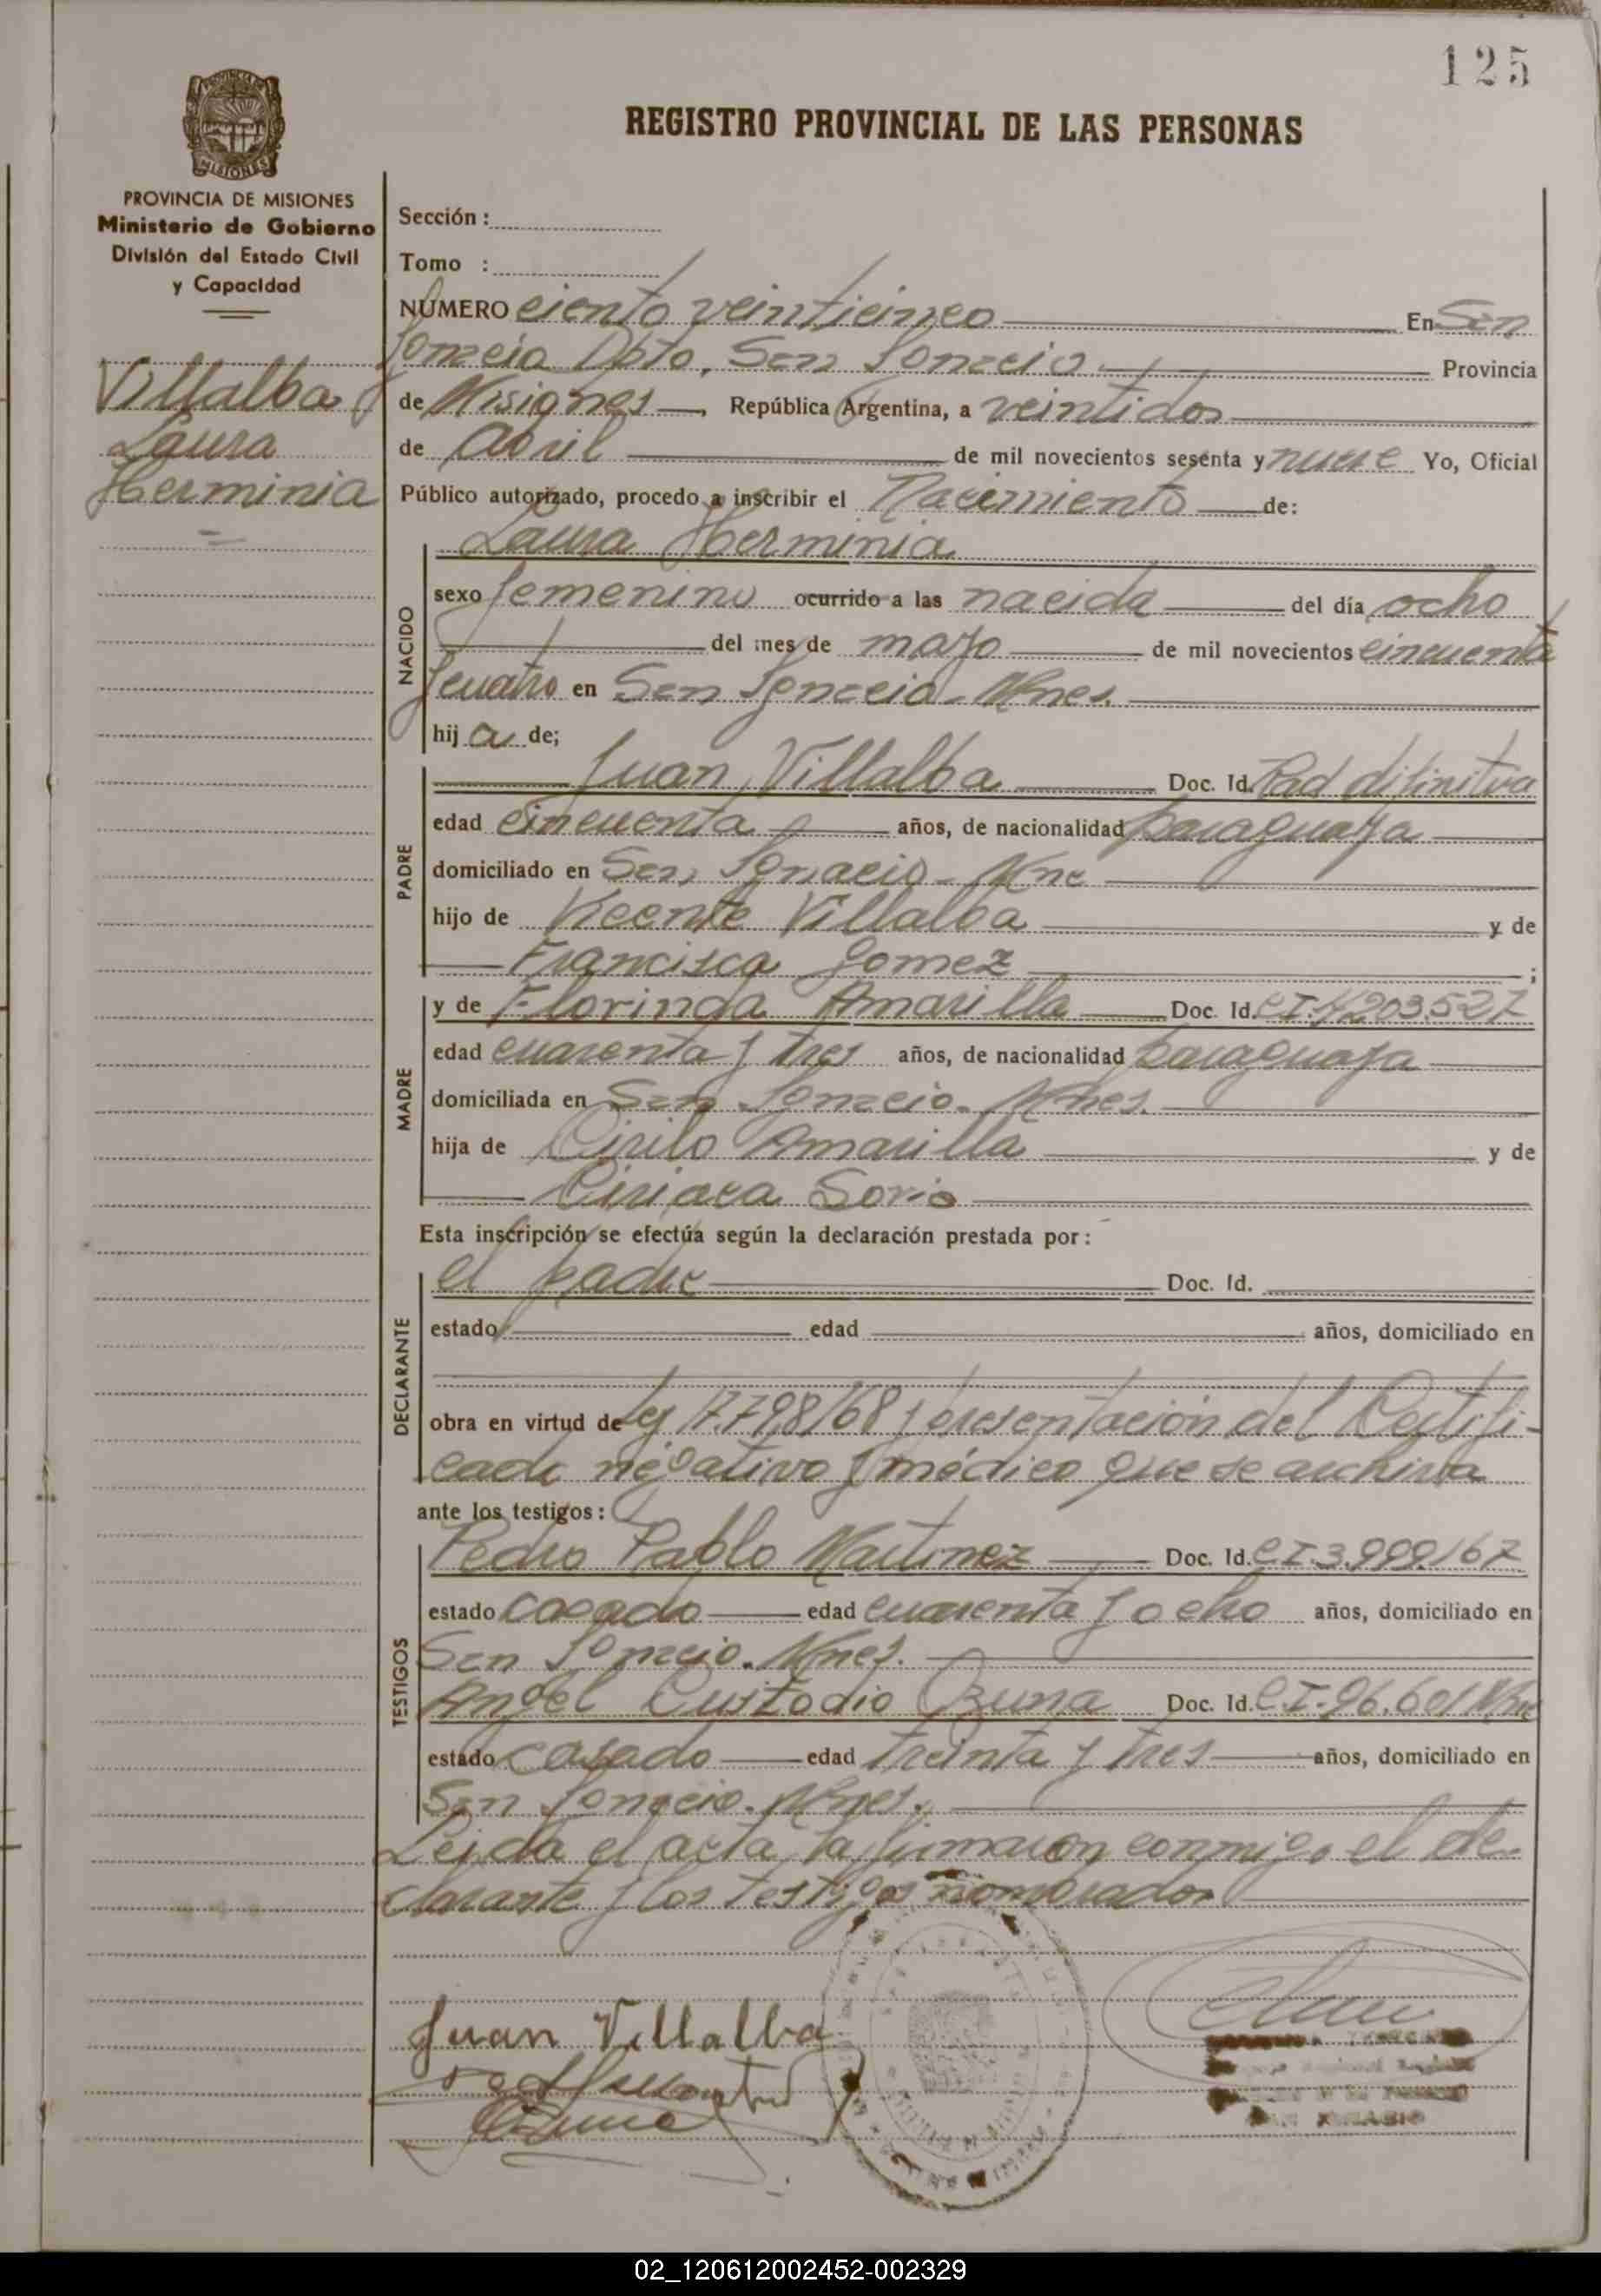 125
REGISTRO PROVINCIAL DE LAS PERSONAS
PROVINCIA DE MISIONES
MISIONES
PROVINCIA DE MISIONES
Ministerio de Gobierno
División del Estado Civil
y Capacidad
Villalba
Laura
Herminia
Sección :
Tomo :
NUMERO ciento veinticinco En San
Ignacio Dpto. San Ignacio Provincia
de Misiones, República Argentina, a veintidos
de Abril de mil novecientos sesenta y nueve Yo, Oficial
Público autorizado, procedo a inscribir el Nacimiento de:
Laura Herminia
NACIDO
sexo femenino ocurrido a las nacida del día ocho
del mes de mayo de mil novecientos cincuenta
y cuatro en San Ignacio - Mnes.
hij a de;
PADRE
Juan Villalba Doc. Id. Rad difinitiva
edad cincuenta años, de nacionalidad paraguaya
domiciliado en San Ignacio - Mne
hijo de Vicente Villalba y de
Francisca Gomez ;
MADRE
y de Florinda Amarilla Doc. Id. C.I. 7203.527
edad cuarenta y tres años, de nacionalidad paraguaya
domiciliada en San Ignacio - Mnes.
hija de Cirilo Amarilla y de
Ciriaca Sorio
Esta inscripción se efectúa según la declaración prestada por :
DECLARANTE
el padre Doc. Id.
estado edad años, domiciliado en
obra en virtud de Ley 17.798/68 y presentación del Certifi-
cado negativo y médico que se archiva
ante los testigos :
TESTIGOS
Pedro Pablo Martinez Doc. Id. C.I. 3.999.167
estado casado edad cuarenta y ocho años, domiciliado en
San Ignacio. Mnes.
Angel Custodio Ozuna Doc. Id. C.I. 96.601 Mne
estado casado edad treinta y tres años, domiciliado en
San Ignacio. Mnes.
Leida el acta, la firmaron conmigo el de-
clarante y los testigos nombrados
Juan Villalba
02_120612002452-002329